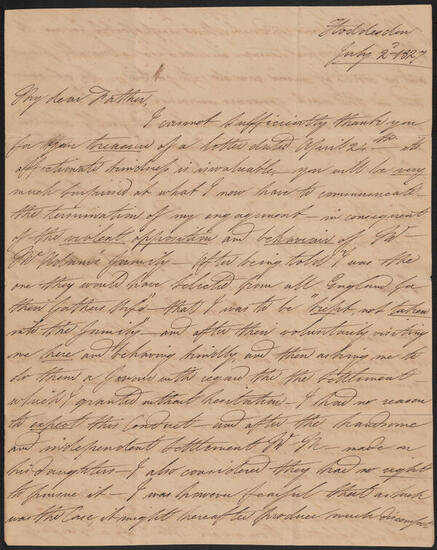 Hoddesdon
July 2d 1827
My dear Father,
I cannot sufficiently thank you
for your treasure of a letter dated April 24th its
affectionate kindness is invaluable – you will be very
much surprised at what I now have to communicate
the termination of my engagement – in consequence
of the violent opposition and behaviour of Mr
family – After being told I was the
one they would have selected from all England for
their Father's wife – that I was to be "kept" not taken
into the family – and after their voluntarily visiting
me here and behaving kindly and then asking me to
do them a favour with regard to the settlement
which I granted without hesitation – I had no reason
to expect this conduct – and after the handsome
and independent settlement Mr made on
his daughters – I also considered they had no right
to pursue it – I was however fearful that as such
was the case, it might hereafter produce much discomfort